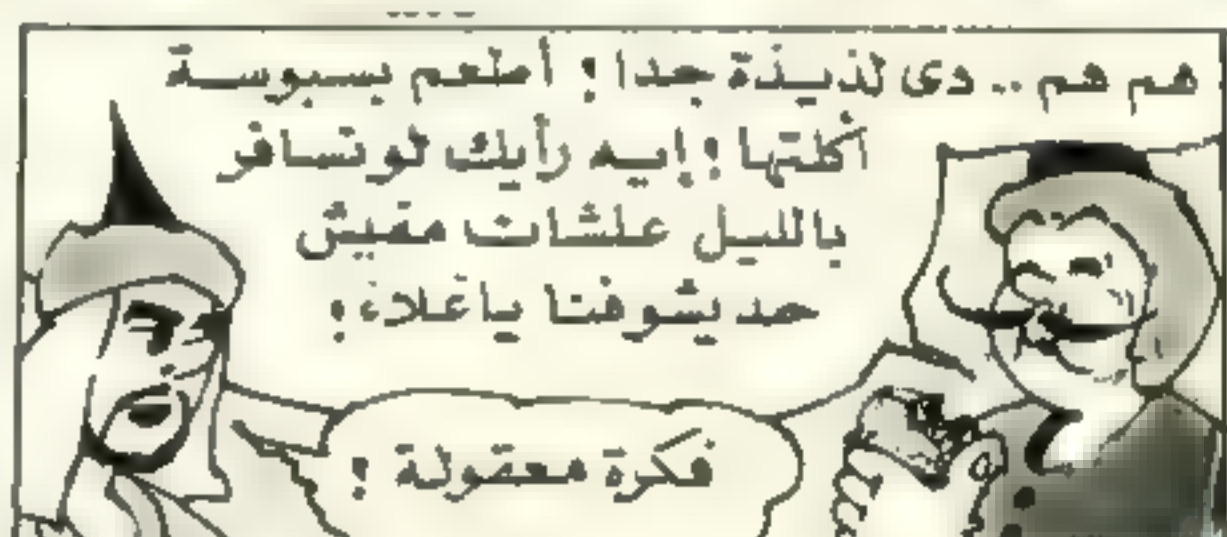 هم هم .. دى لذيذة جدا ! أطعم بسبوسة
أكلتها ! إيه رأيك لو نسافر
بالليل علشان مفيش
حد يشوفنا ياعلاء !
فكرة معقولة !